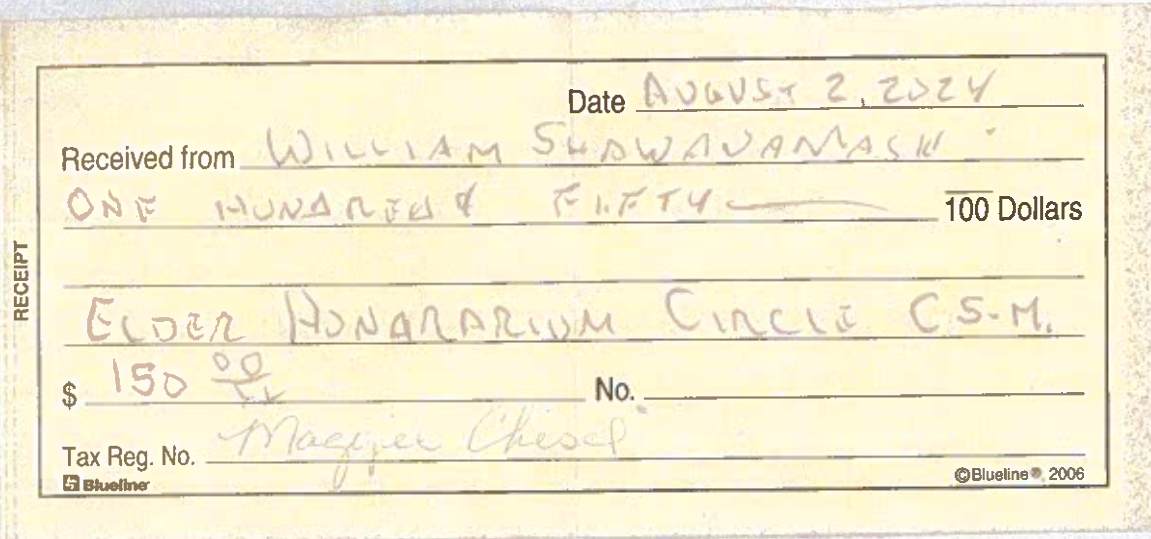 RECEIPT
Date AUGUST 2, 2024
Received from WILLIAM
ONE HUNDRED & FIFTY 100 Dollars
ELDER HONARARIUM CIRCLE C.S.M.
$ 150 00
No.
Tax Reg. No.
Blueline
©Blueline® 2006